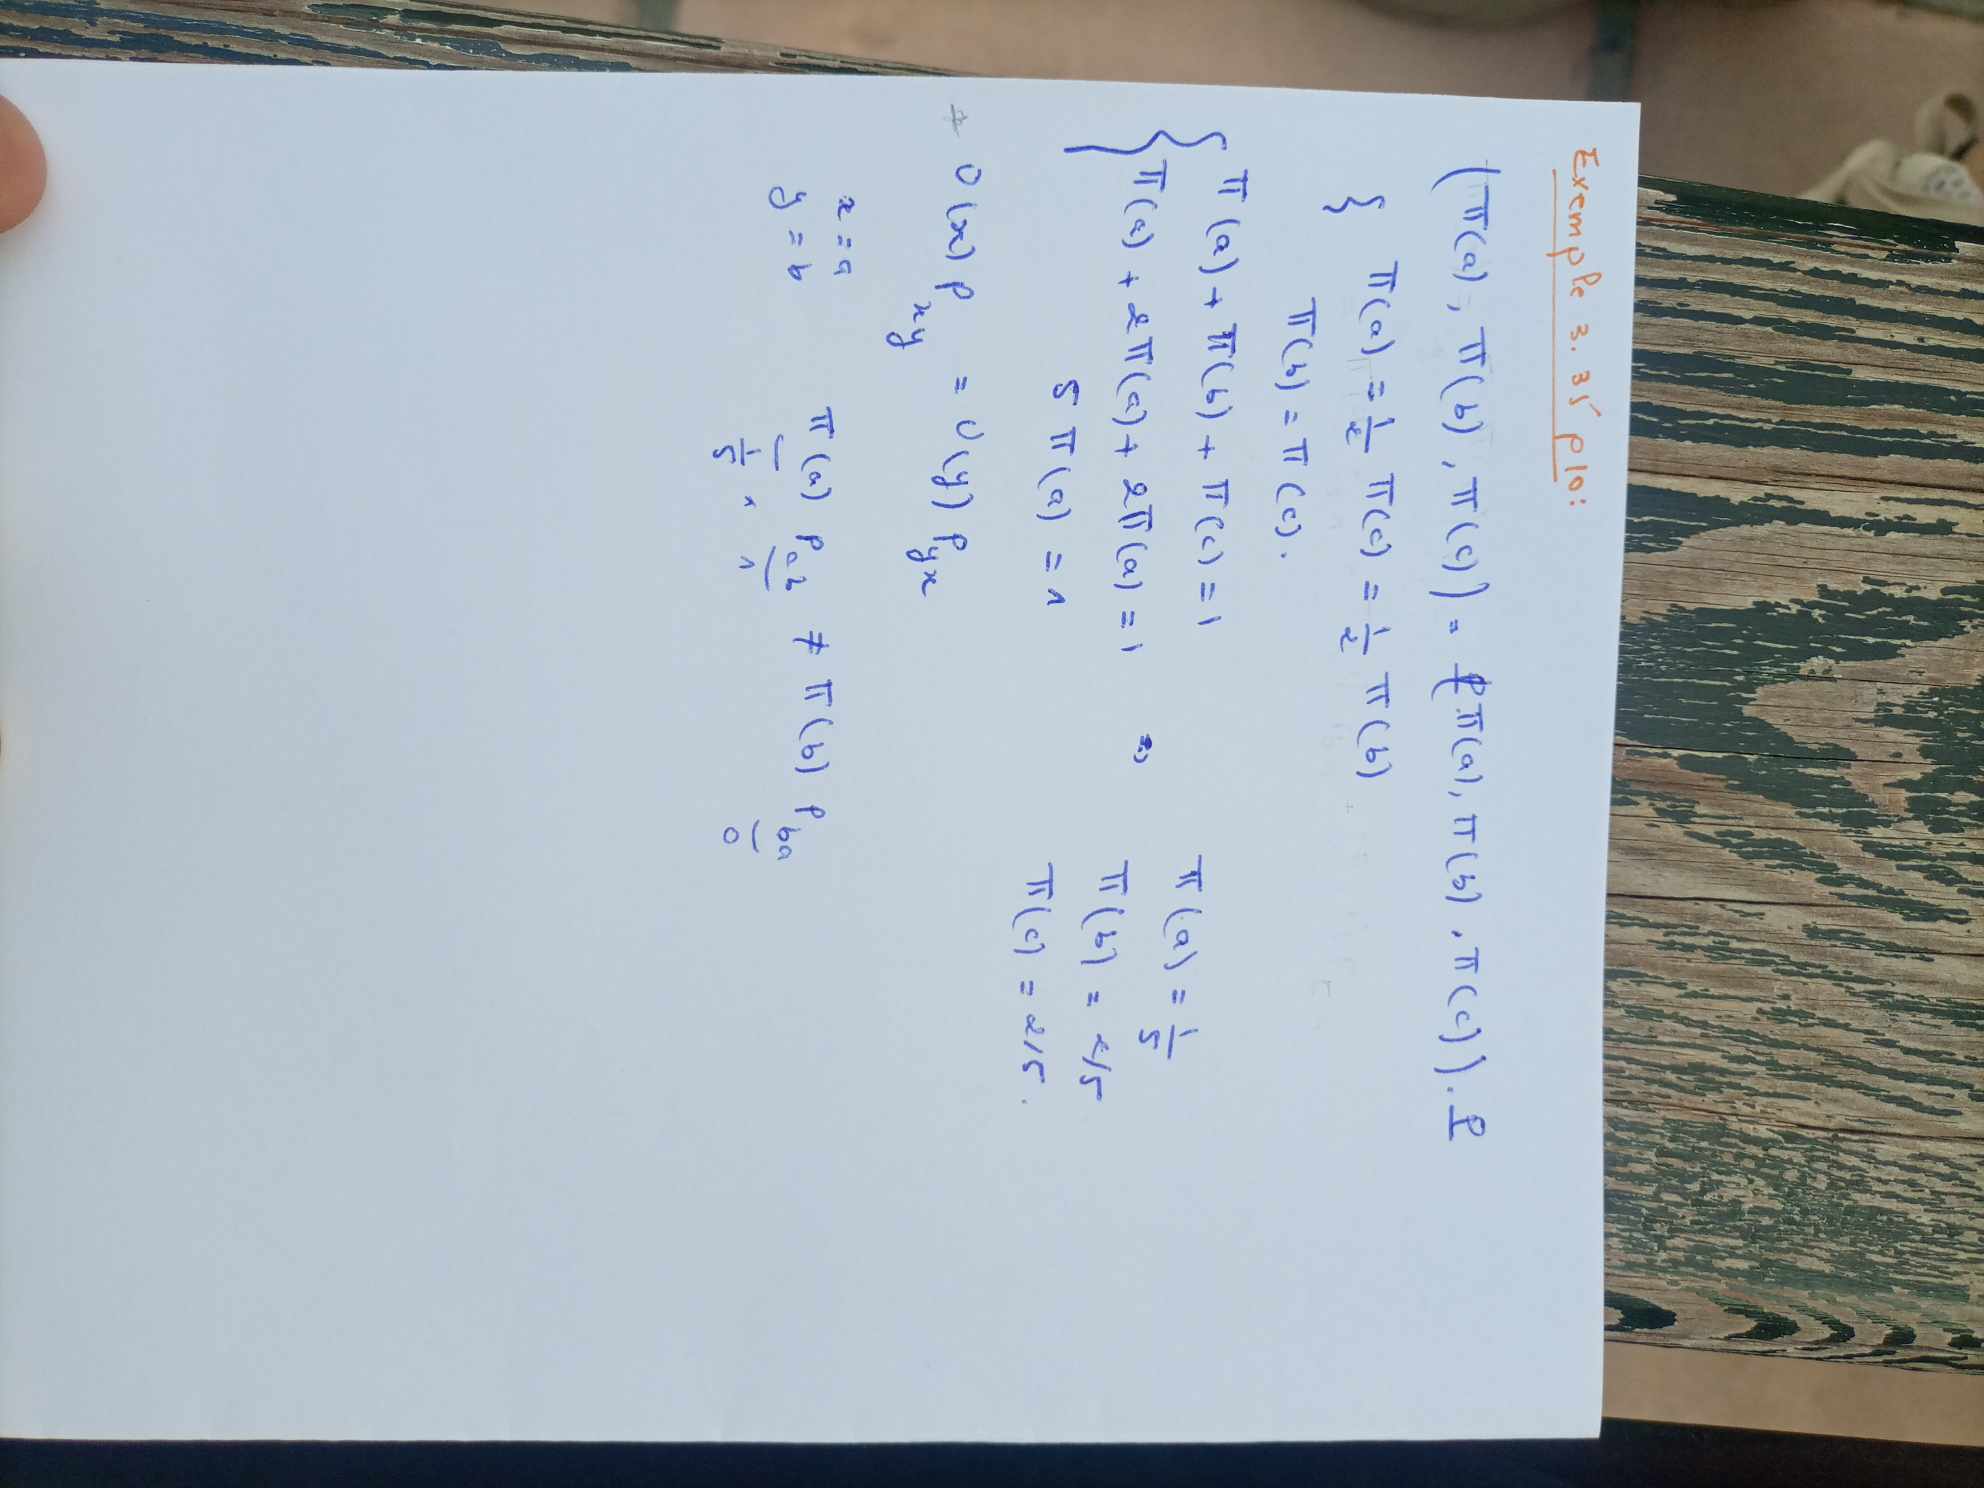 Exemple 3.35 p10:
(π(a), π(b), π(c)) = (π(a), π(b), π(c)). P
{ π(a) = 1/2 π(c) = 1/2 π(b)
π(b) = π(c).
{ π(a) + π(b) + π(c) = 1
π(a) + 2π(a) + 2π(a) = 1 =>
5 π(a) = 1
π(a) = 1/5
π(b) = 2/5
π(c) = 2/5.
* ν(x) P_xy = ν(y) P_yx
x = a
y = b
π(a) P_ab ≠ π(b) P_ba
1/5 × 1 0